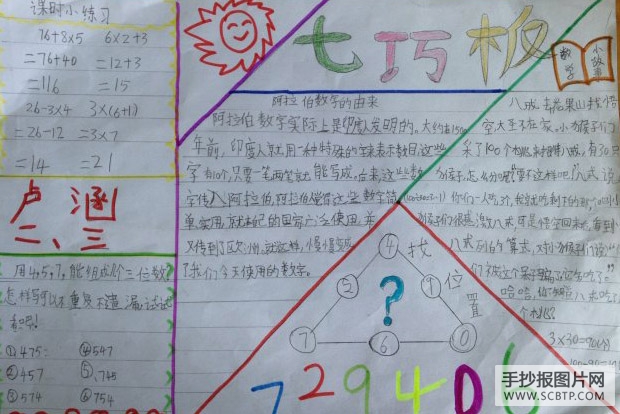 课时小练习
76+8×5 6×2+3
=76+40 =12+3
=116 =15
26-3×4 3×(6+1)
=26-12 =3×7
=14 =21
卢涵
二、三
用4.5.7.能组成个三位数?
怎样写可以不重复不遗漏试试
看吧!
①475: ④547
②457 ⑤.745
③574 ⑥754
七巧板
数学 小故事
阿拉伯数字的由来
阿拉伯数字实际上是印度人发明的。大约在1500
年前,印度人就用一种特殊的字来表示数目,这些
字有10个,只要一笔两笔就能写成。后来,这些数
字传入阿拉伯,阿拉伯人觉得这些数字简
单,实用,就在自己的国家广泛使用,并
又传到了欧洲。就这样,慢慢变成
了我们今天使用的数字。
找
位
置
4
5 1
7 6 0
?
7294D6
八戒去花果山找悟
空,大圣不在家。小猴子们
采了100个桃,
八戒说
你们一人3个,
八戒列的算式,对小猴子们说
哈哈,你知道八戒吃了
个桃?
3×30=90(个)
100-90=10
手抄报图片网
WWW.SCBTP.COM